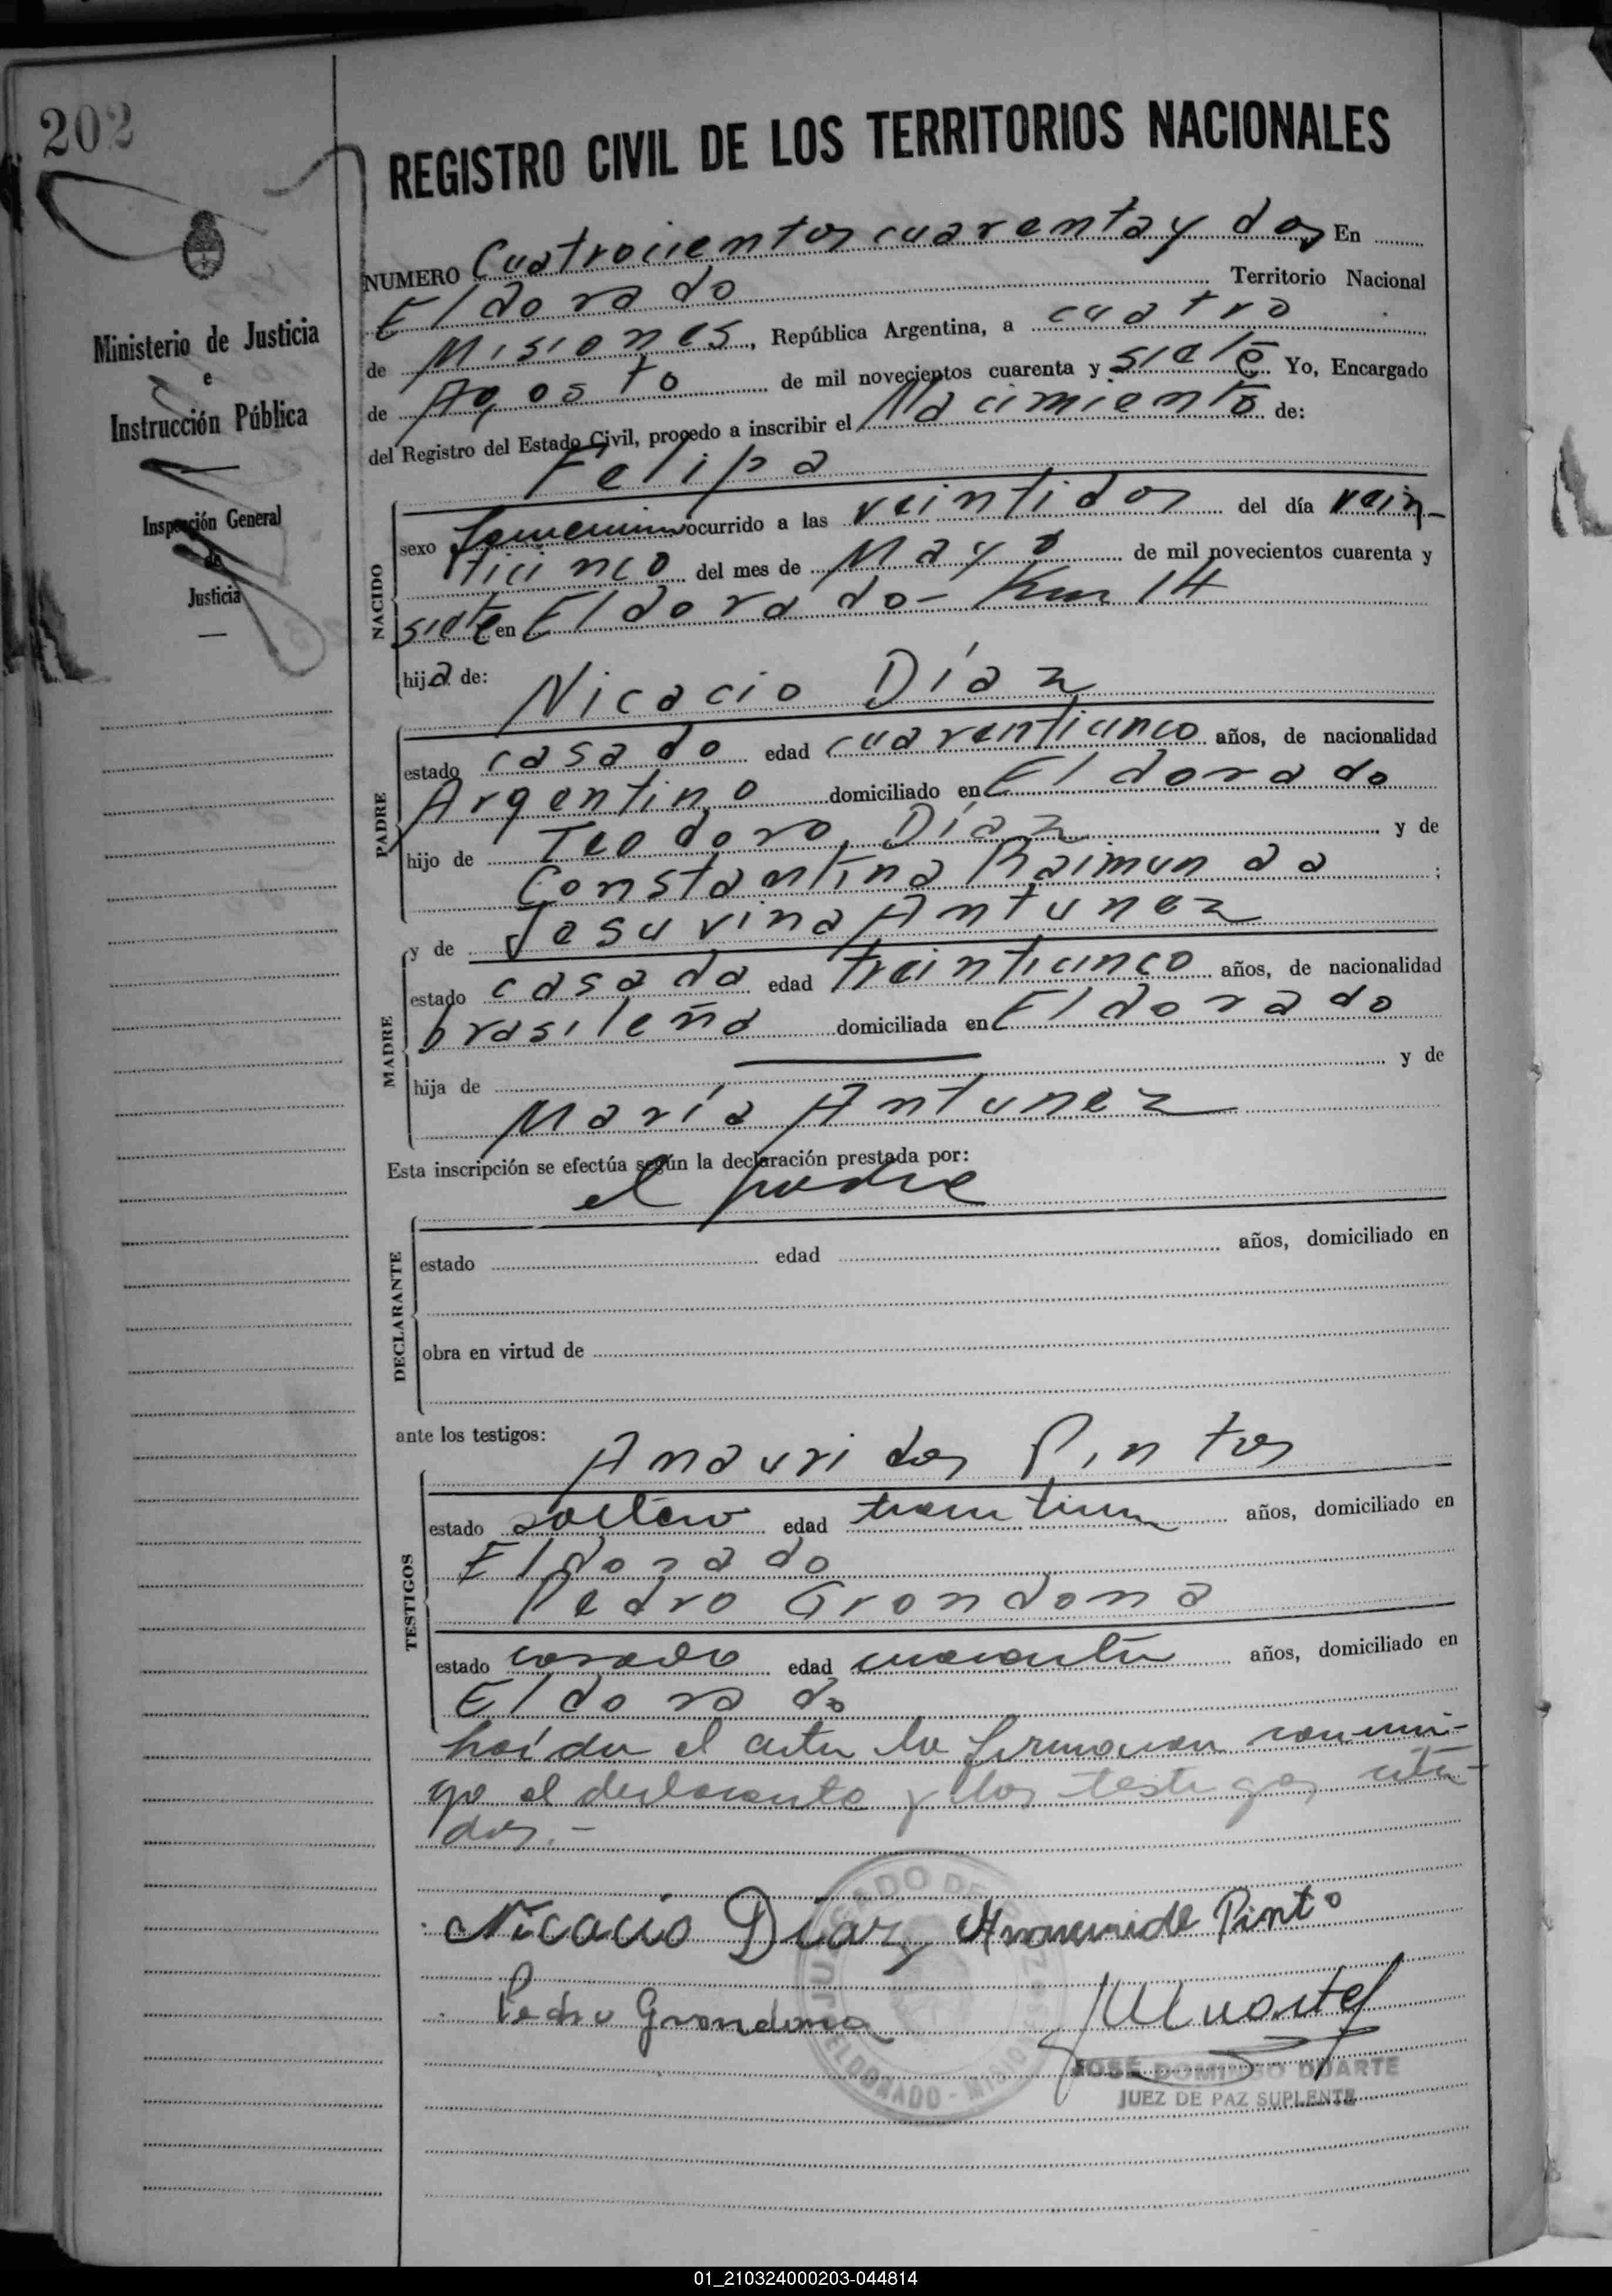 202
REGISTRO CIVIL DE LOS TERRITORIOS NACIONALES
Ministerio de Justicia
e
Instrucción Pública
Inspección General
de
Justicia
NUMERO Cuatrocientos cuarenta y dos En
Eldorado Territorio Nacional
de Misiones, República Argentina, a cuatro
de Agosto de mil novecientos cuarenta y siete Yo, Encargado
del Registro del Estado Civil, procedo a inscribir el Nacimiento de:
Felipa
NACIDO
sexo femenino ocurrido a las veintidos del día vein-
ticinco del mes de Mayo de mil novecientos cuarenta y
siete en Eldorado - Km 14
hija de:
Nicacio Díaz
PADRE
estado casado edad cuarenticinco años, de nacionalidad
Argentino domiciliado en Eldorado
hijo de Teodoro Díaz y de
Constantina Raimunda ;
y de Jesuvina Antunez
MADRE
estado casada edad treinticinco años, de nacionalidad
brasileña domiciliada en Eldorado
hija de y de
María Antunez
Esta inscripción se efectúa según la declaración prestada por:
el padre
DECLARANTE
estado edad años, domiciliado en
obra en virtud de
ante los testigos:
Anauri dos Pintos
TESTIGOS
estado soltero edad años, domiciliado en
Eldorado
Pedro Grondona
estado casado edad cuarenta años, domiciliado en
Eldorado
leída el acta la firmaron conmi-
go el declarante y los testigos cita-
dos.-
Nicacio Díaz Pinto
Pedro Grondona
JUZGADO DE PAZ
ELDORADO - MISIONES
JOSÉ DOMINGO DUARTE
JUEZ DE PAZ SUPLENTE
01_210324000203-044814